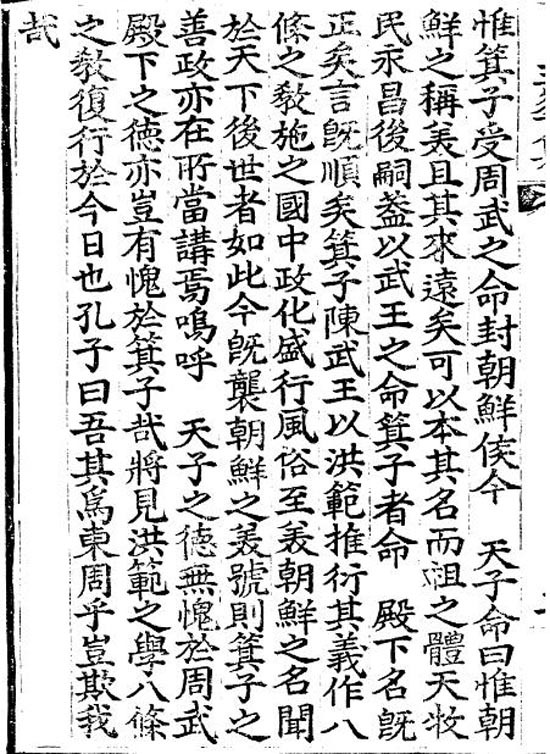 惟箕子受周武之命封朝鮮侯今　天子命曰惟朝
鮮之稱美且其來遠矣可以本其名而祖之體天牧
民永昌後嗣盖以武王之命箕子者命　殿下名旣
正矣言旣順矣箕子陳武王以洪範推衍其義作八
條之敎施之國中政化盛行風俗至美朝鮮之名聞
於天下後世者如此今旣襲朝鮮之美號則箕子之
善政亦在所當講焉嗚呼　天子之德無愧於周武
殿下之德亦豈有愧於箕子哉將見洪範之學八條
之敎復行於今日也孔子曰吾其爲東周乎豈欺我
哉